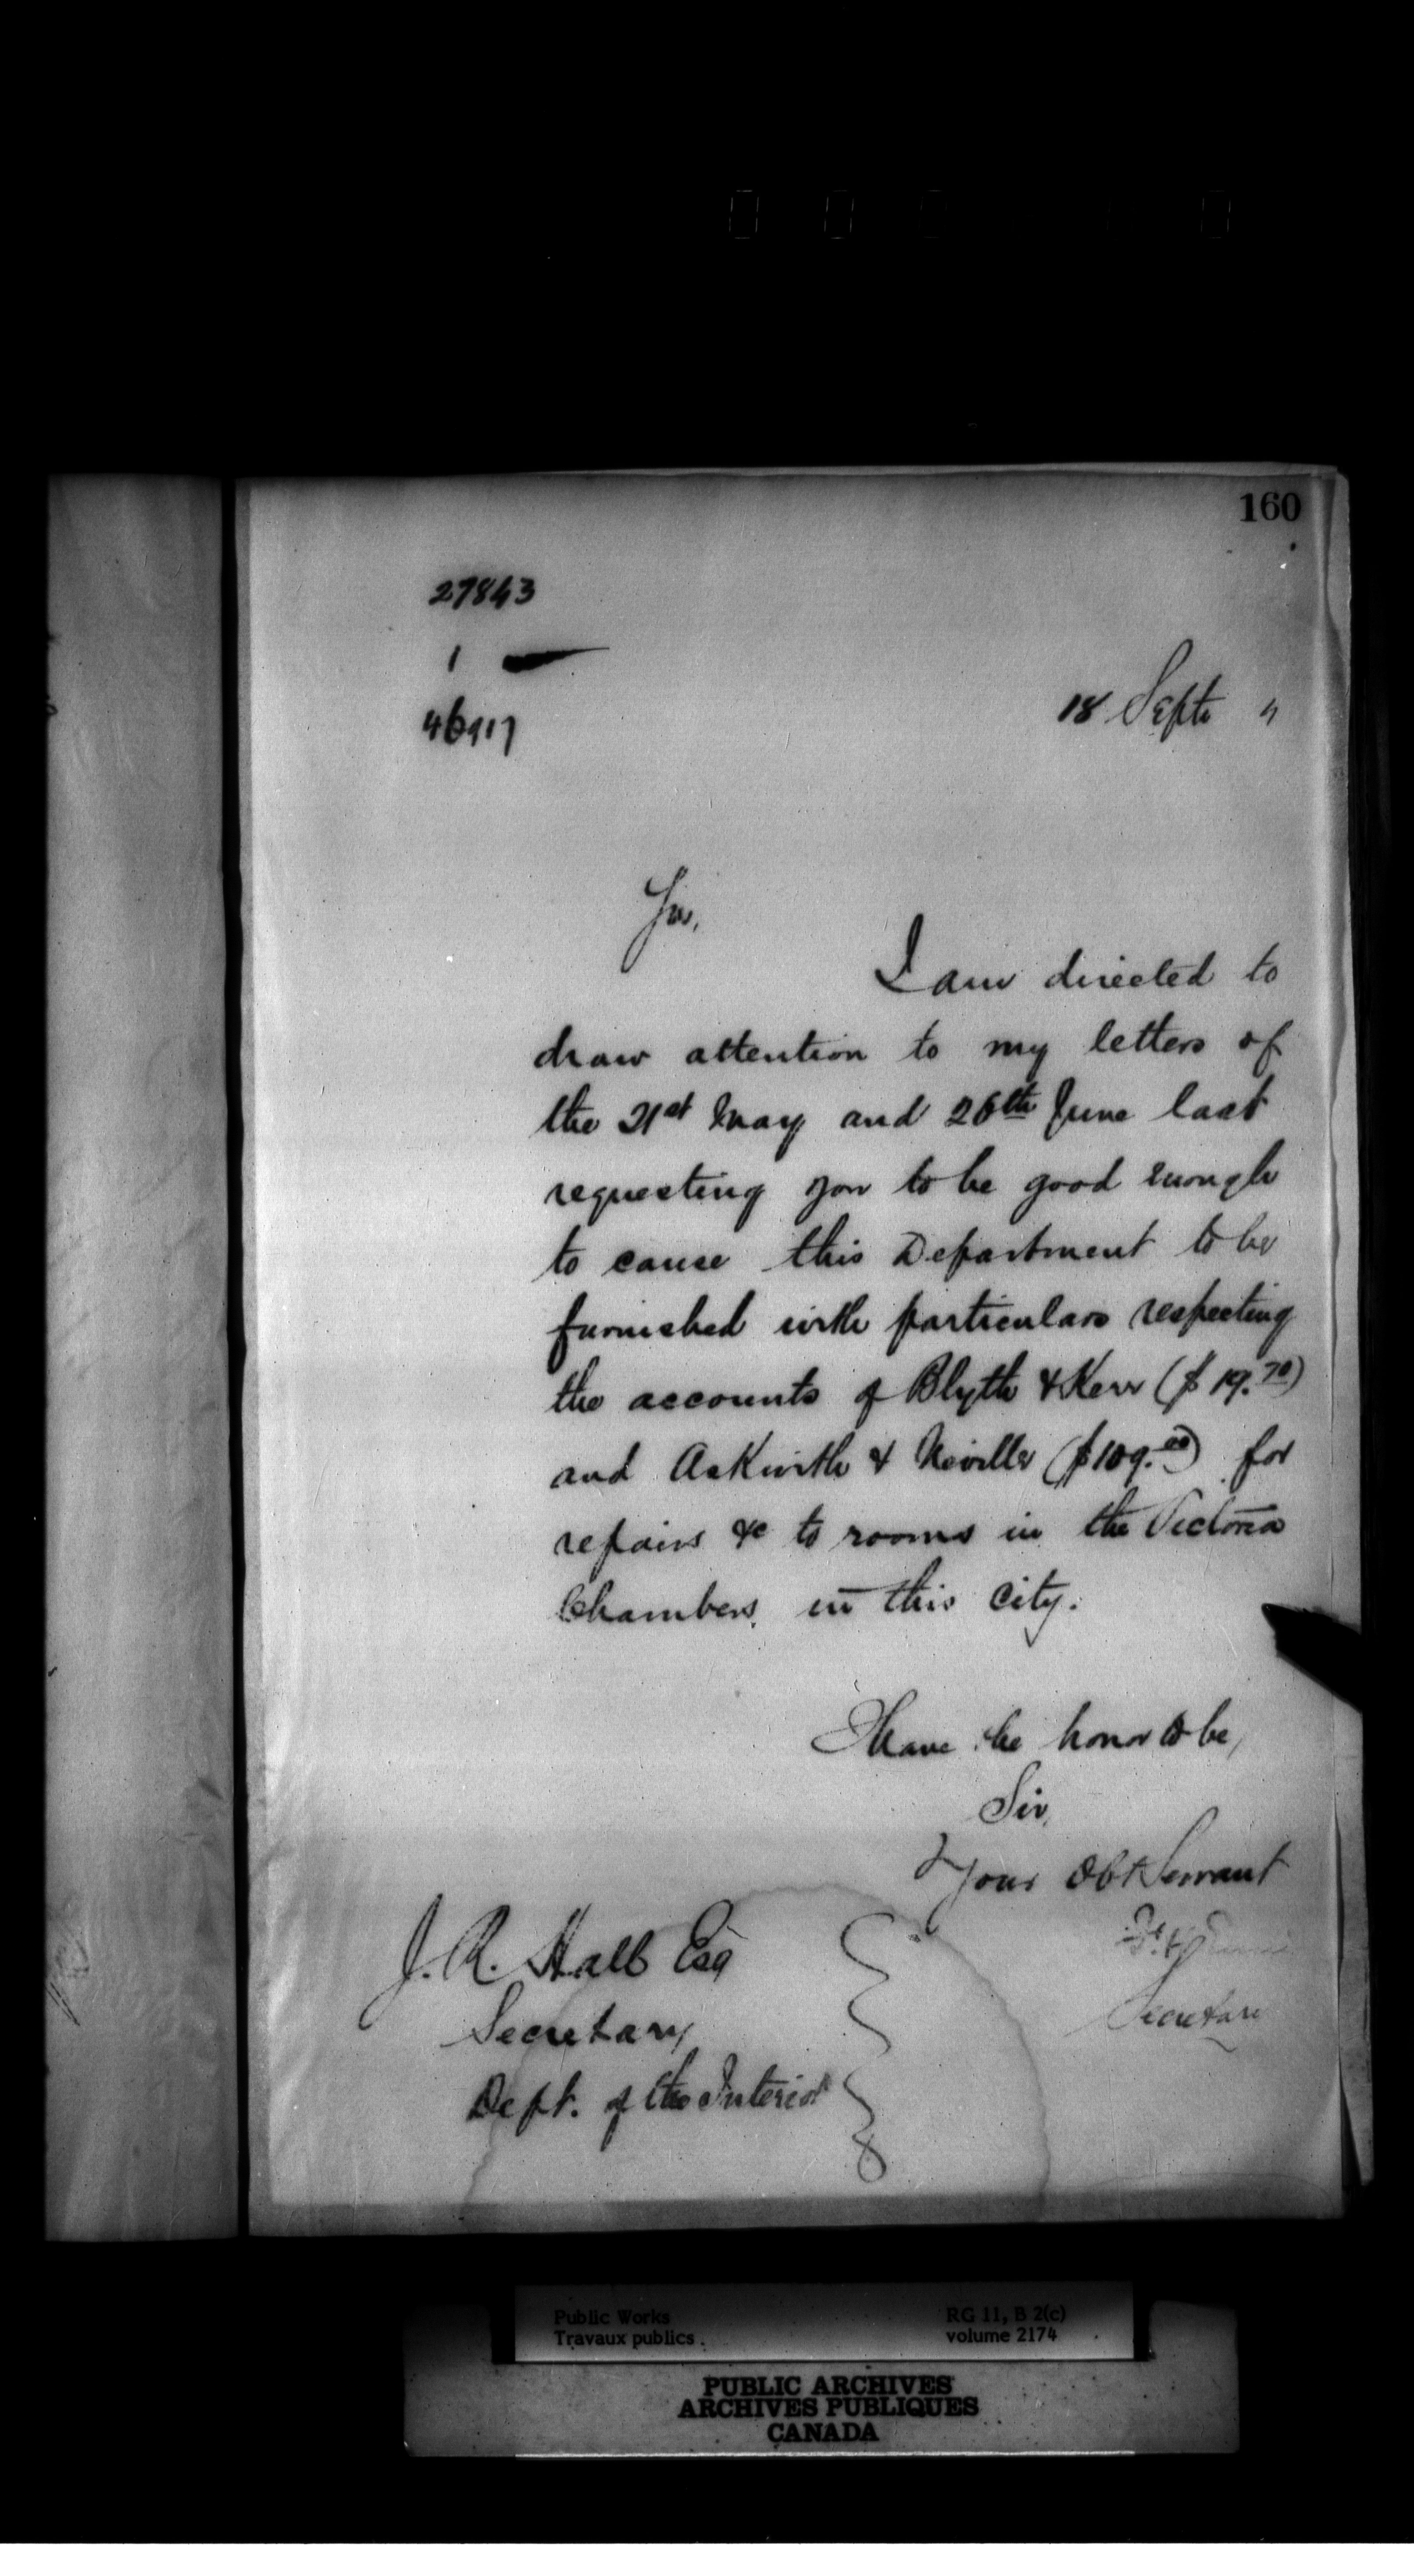 160
27843
1
46917
18 Septr "
Sir,
I am directed to
draw attention to my letters of
the 21st May and 26th June last
requesting you to be good enough
to cause this Department to be
furnished with particulars respecting
the accounts of Blyth & Kerr ($19.70)
and Askwith & Neville ($109.00) for
repairs &c to rooms in the Victoria
Chambers, in this city.
I have the honor to be,
Sir,
Your Obt Servant
Secretary
J. R. Hall Esq
Secretary
Dept. of the Interior
Public Works
Travaux publics
RG 11, B 2(c)
volume 2174
PUBLIC ARCHIVES
ARCHIVES PUBLIQUES
CANADA